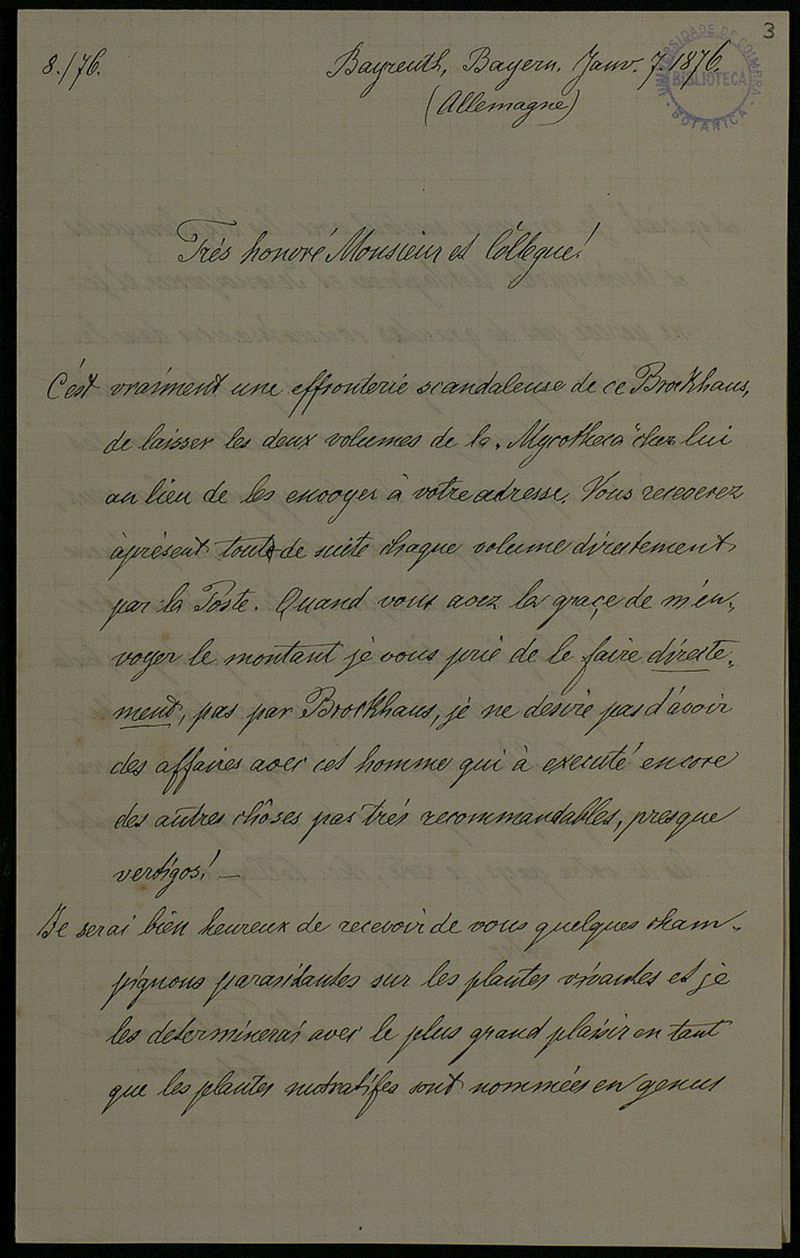 3
8./76.
Bayreuth, Bayern. Janv. 7. 1876.
(Allemagne)
UNIVERSIDADE DE COIMBRA
BIBLIOTECA
BOTANICA
Trés honoré Monsieur et Collegue!
C'ést vraiment une effronterie scandaleuse de ce Brockhaus,
de laisser les deux volumes de la „Mycotheca" chez lui
au lieu de les envoyer à votre adresse. Vous receverez
àprésent tout de suite chaque volume directement
par la Poste. Quand vous avez la graçe de m'en„
voyer le montant je vous prie de le faire directe„
ment, pas par Brockhaus, je ne desire pas d'avoir
des affaires avec cet homme qui à executé encore
des autres chôses pas trés recommandables, presque
vertigos! —
Je serai bien heureux de recevoir de vous quelques cham„
pignons parasitantes sur les plantes vivantes et je
les determinerai avec le plus grand plaisir en tant
que les plantes nutratifes sont nommées en genus